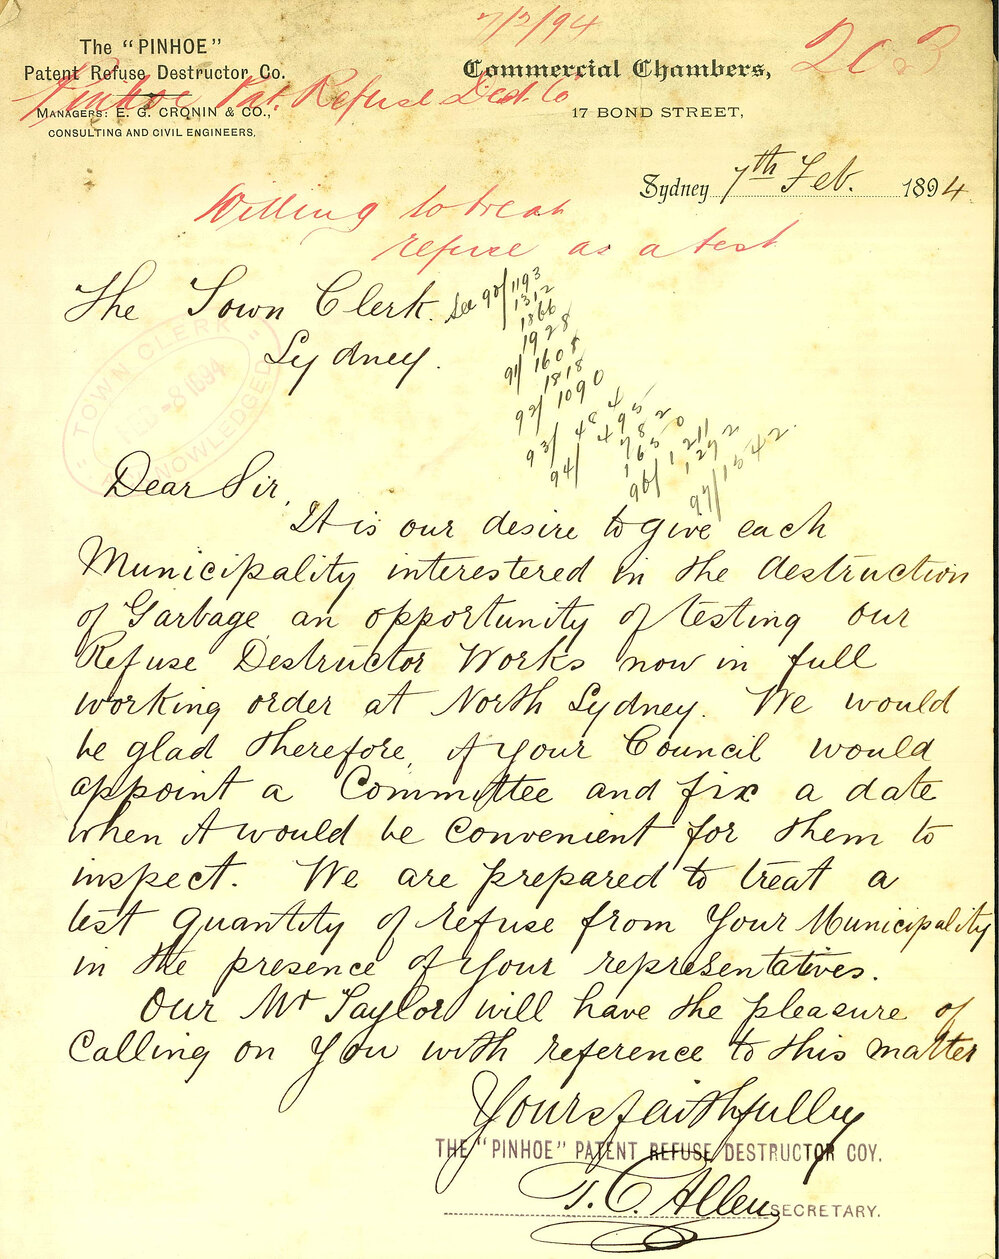 7/2/94
203
The "PINHOE"
Patent Refuse Destructor Co.
MANAGERS: E. G. CRONIN & CO.,
CONSULTING AND CIVIL ENGINEERS.
Commercial Chambers,
17 BOND STREET,
Pinhoe Pat. Refuse Dest. Co
Sydney 7th Feb. 1894.
Willing to treat
refuse as a test
The Town Clerk.
Sydney.
See 90/1193
1312
1866
1928
91/1608
1818
92/1090
93/484
94/495
782
1650
96/1211
1272
97/1542.
TOWN CLERK
FEB -8 1894
ACKNOWLEDGED
Dear Sir,
It is our desire to give each
Municipality interestered in the destruction
of Garbage an opportunity of testing our
Refuse Destructor Works now in full
working order at North Sydney. We would
be glad therefore, if your Council would
appoint a Committee and fix a date
when it would be convenient for them to
inspect. We are prepared to treat a
test quantity of refuse from your Municipality
in the presence of your representatives.
Our Mr Taylor will have the pleasure of
Calling on you with reference to this matter
Yours faithfully
THE "PINHOE" PATENT REFUSE DESTRUCTOR COY.
T. C. Allen SECRETARY.